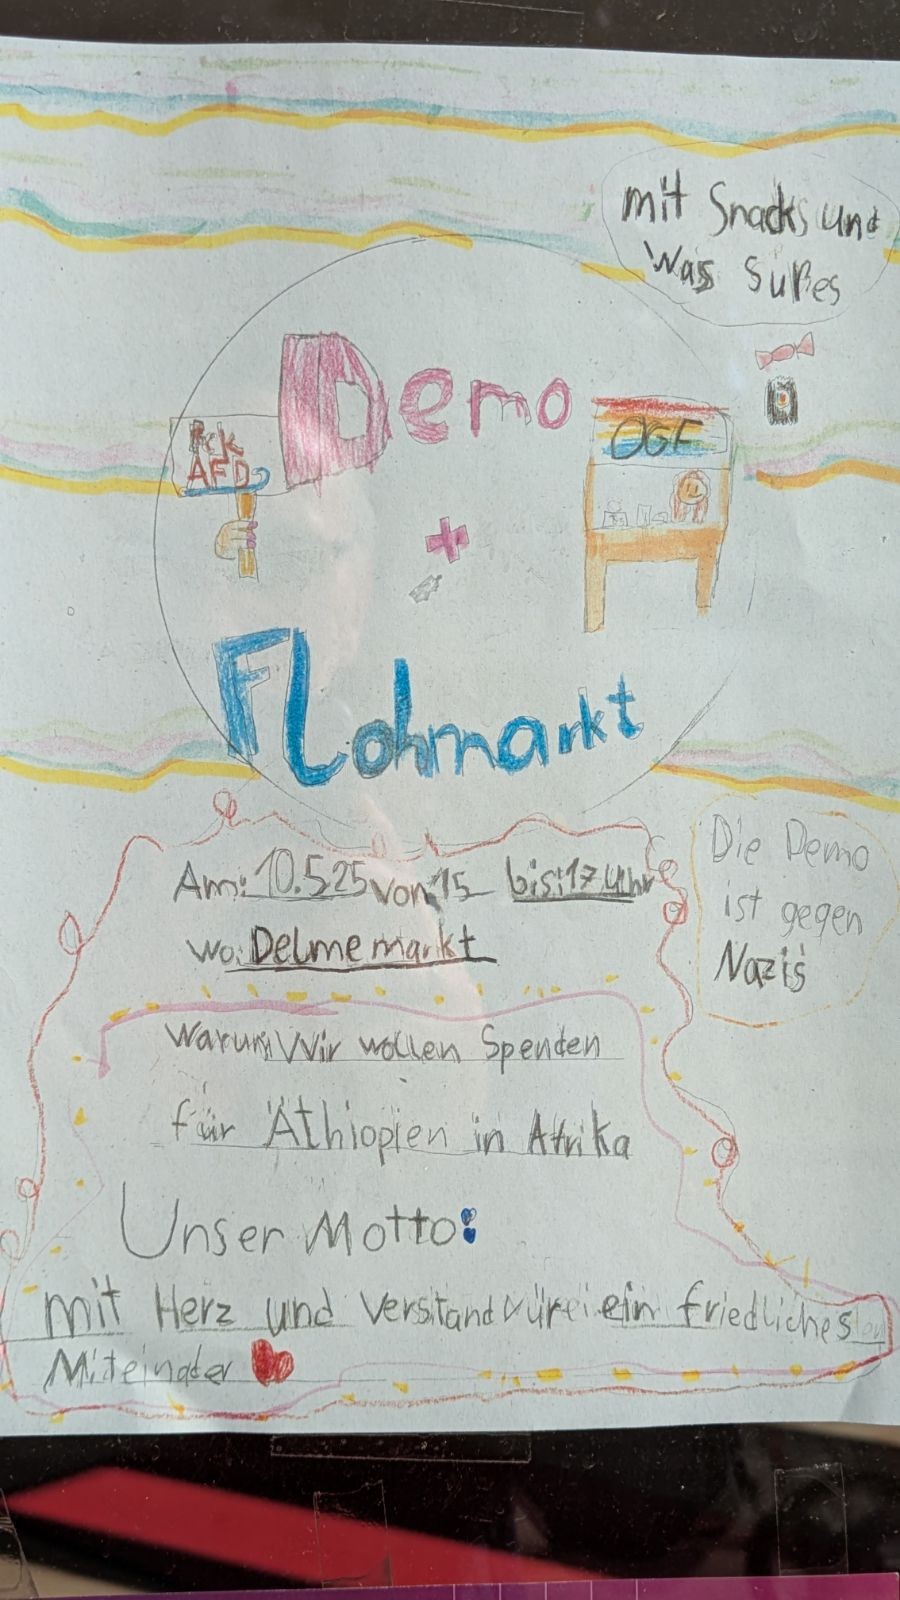 mit Snacks und
was süßes
Demo
Fck
AFD
OGF
+
Flohmarkt
Am: 10.5.25 von 15 bis: 17 uhr
wo: Delmemarkt
Die Demo
ist gegen
Nazis
Warum Wir wollen Spenden
für Äthiopien in Afrika
Unser Motto:
mit Herz und Verstand vürei ein friedliches
Miteinader